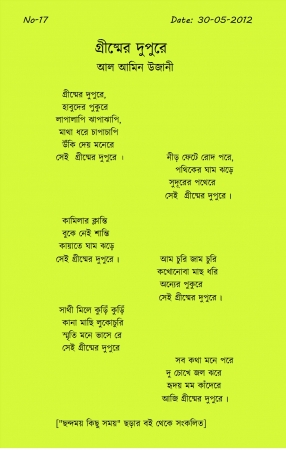 No-17
Date: 30-05-2012
গ্রীষ্মের দুপুরে
আল আমিন উজানী
গ্রীষ্মের দুপুরে,
হাবুদের পুকুরে
লাপালাপি ঝাপাঝাপি,
মাথা ধরে চাপাচাপি
উঁকি দেয় মনেরে
সেই গ্রীষ্মের দুপুরে ।
নীড় ফেটে রোদ পরে,
পথিকের ঘাম ঝড়ে
সুদূরের পথেরে
সেই গ্রীষ্মের দুপুরে ।
কামিলার ক্লান্তি
বুকে নেই শান্তি
কায়াতে ঘাম ঝড়ে
সেই গ্রীষ্মের দুপুরে ।
আম চুরি জাম চুরি
কখোনোবা মাছ ধরি
অন্যের পুকুরে
সেই গ্রীষ্মের দুপুরে ।
সাথী মিলে কুড়িঁ কুড়িঁ
কানা মাছি লুকোচুরি
স্মৃতি মনে ভাসে রে
সেই গ্রীষ্মের দুপুরে
সব কথা মনে পরে
দু চোখে জল ঝরে
হৃদয় মম কাঁদেরে
আজি গ্রীষ্মের দুপুরে ।
["ছন্দময় কিছু সময়" ছড়ার বই থেকে সংকলিত]